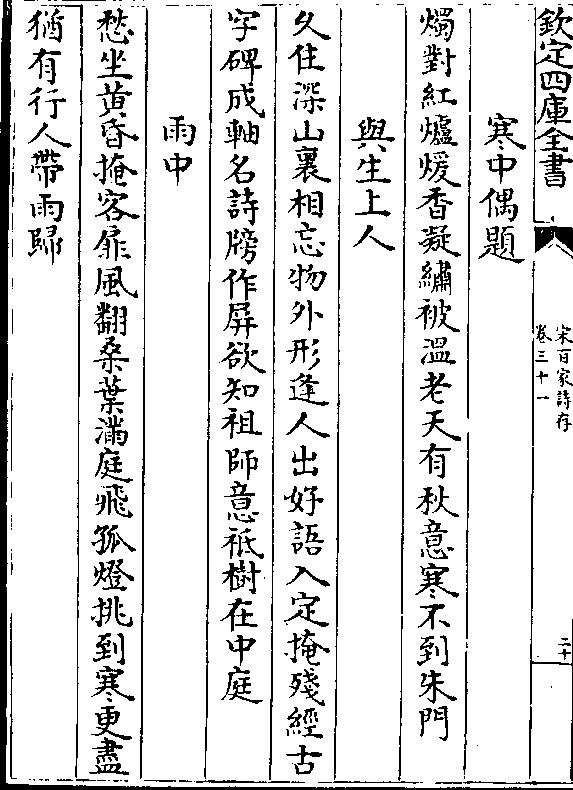 欽定四庫全書
宋百家詩存
卷三十一
二十
寒中偶題
燭對紅爐煖香凝繡被溫老天有秋意寒不到朱門
與生上人
久住深山裏相忘物外形逢人出好語入定掩殘經古
字碑成軸名詩牓作屏欲知祖師意祗樹在中庭
雨中
愁坐黄昏掩客扉風翻桑葉滿庭飛孤燈挑到寒更盡
猶有行人帶雨歸